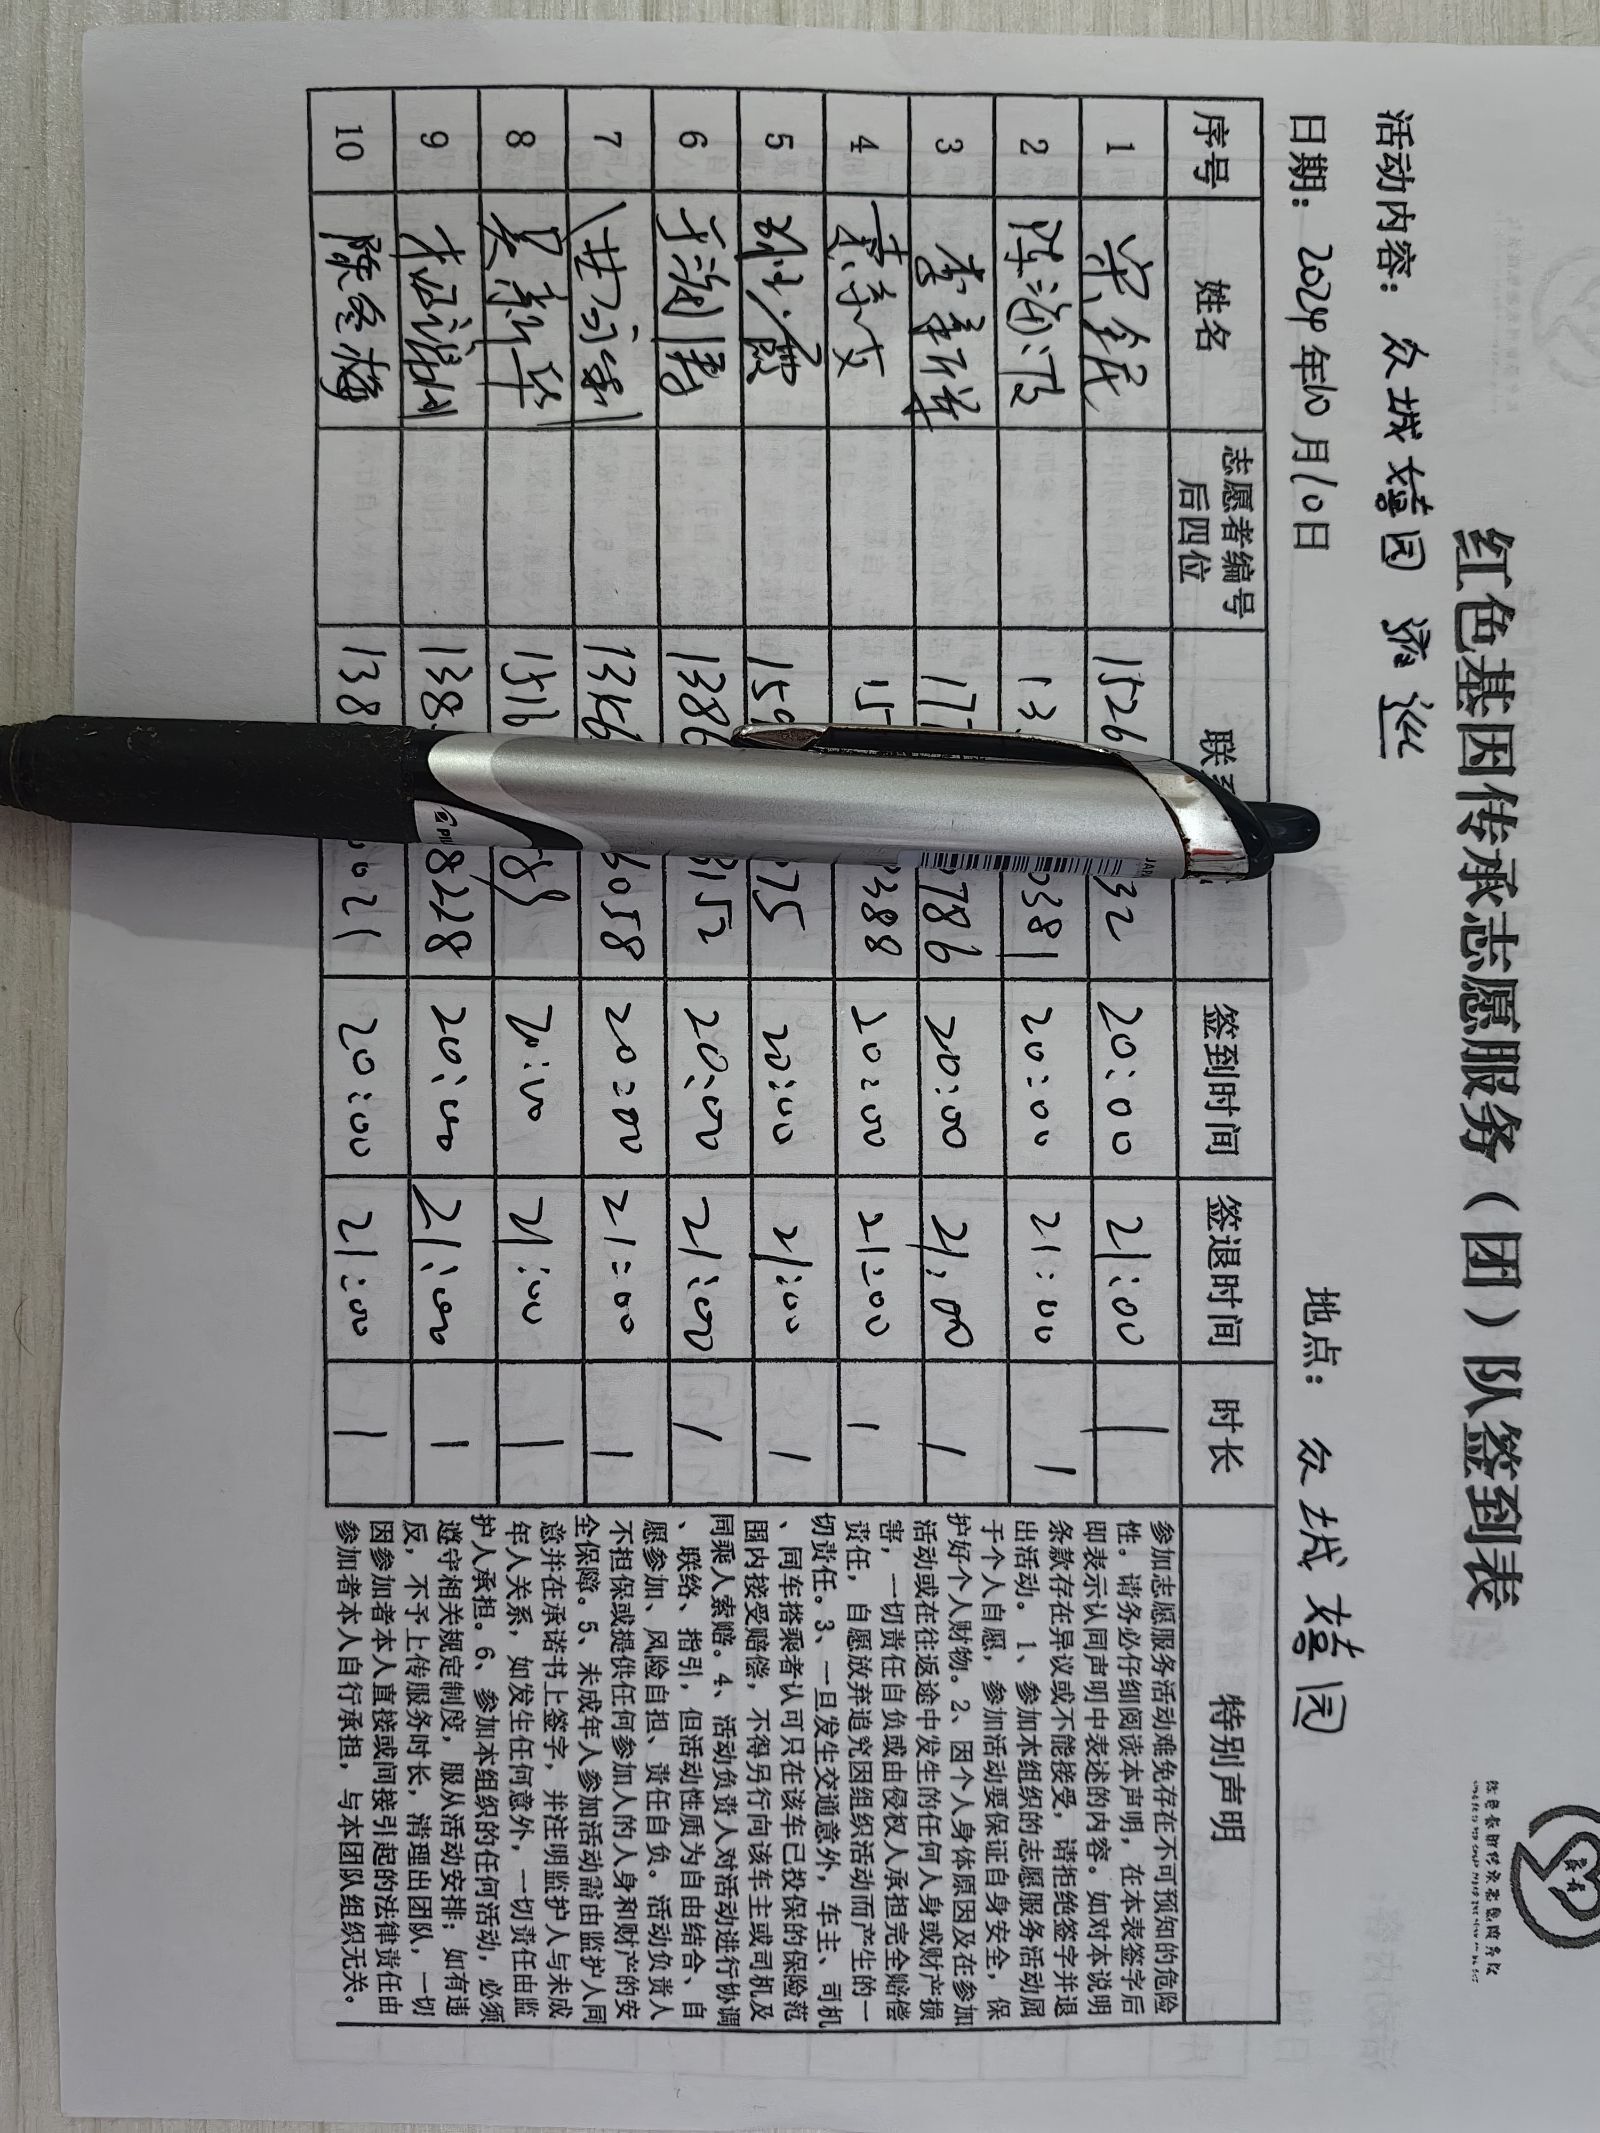 红色基因传承志愿服务（团）队签到表
活动内容：众城嬉园 巡
日期：2024年10月10日 地点：众城嬉园
序号 姓名 志愿者编号后四位 签到时间 签退时间 时长 特别声明
1 1526 32 20:00 21:00 1
2 陈海滨 13 0381 20:00 21:00 1
3 李 祥 17 0786 20:00 21:00 1
4 15 388 20:00 21:00 1
5 159 75 20:00 21:00 1
6 1386 3152 20:00 21:00 1
7 1356 6058 20:00 21:00 1
8 吴新华 1516 89 20:00 21:00 1
9 138 8278 20:00 21:00 1
10 陈冬梅 138 6021 20:00 21:00 1
参加志愿服务活动难免存在不可预知的危险
性。请务必仔细阅读本声明，在本表签字后
即表示认同声明中表述的内容。如对本说明
条款存在异议或不能接受，请拒绝签字并退
出活动。1、参加本组织的志愿服务活动属
于个人自愿，参加活动要保证自身安全，保
护好个人财物。2、因个人身体原因及在参加
活动或在往返途中发生的任何人身或财产损
害，一切责任自负或由侵权人承担完全赔偿
责任，自愿放弃追究因组织活动而产生的一
切责任。3、一旦发生交通意外，车主、司机
、同车搭乘者认可只在该车已投保的保险范
围内接受赔偿，不得另行向该车主或司机及
同乘人索赔。4、活动负责人对活动进行协调
、联络、指引，但活动性质为自由结合、自
愿参加、风险自担、责任自负。活动负责人
不担保或提供任何参加人的人身和财产的安
全保障。5、未成年人参加活动需由监护人同
意并在承诺书上签字，并注明监护人与未成
年人关系，如发生任何意外，一切责任由监
护人承担。6、参加本组织的任何活动，必须
遵守相关规定制度，服从活动安排；如有违
反，不予上传服务时长，清理出团队，一切
因参加者本人直接或间接引起的法律责任由
参加者本人自行承担，与本团队组织无关。